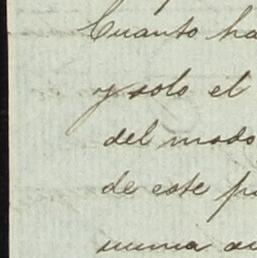 Cuanto ha
y solo el
del modo
de este